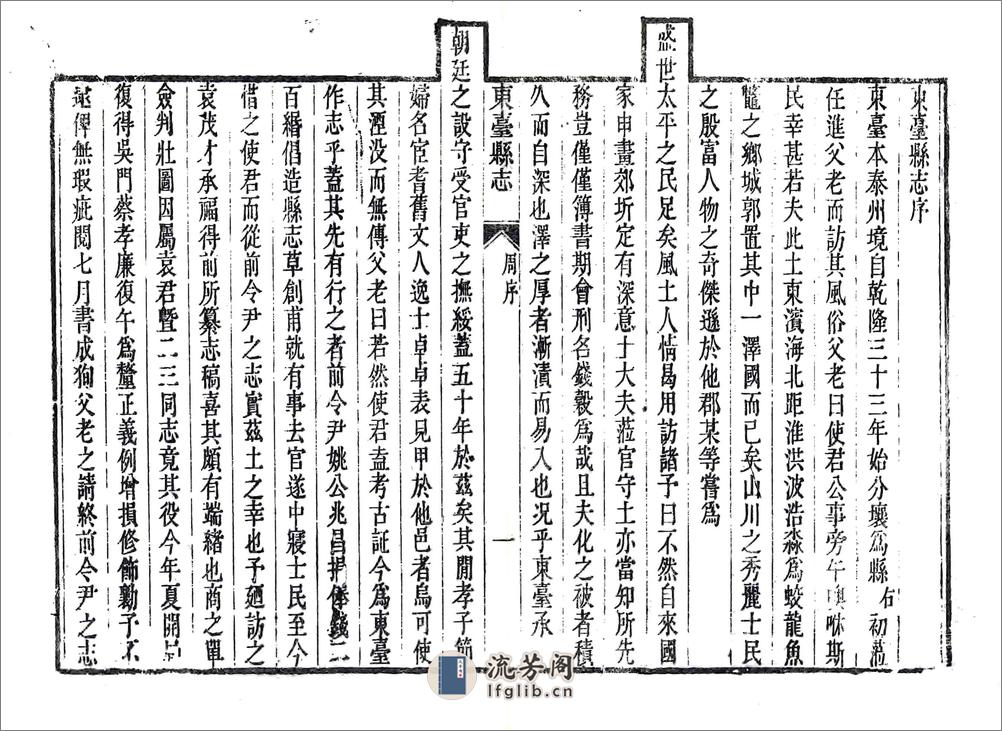 東臺縣志序
東臺本泰州境自乾隆三十三年始分壤爲縣右初蒞
任進父老而訪其風俗父老曰使君公事旁午噢咻斯
民幸甚若夫此土東濱海北距淮洪波浩淼爲蛟龍魚
鼈之鄉城郭置其中一澤國而已矣山川之秀麗士民
之殷富人物之奇傑遜於他郡某等嘗爲
盛世太平之民足矣風土人情曷用訪諸予曰不然自來國
家申畫郊圻定有深意士大夫蒞官守土亦當知所先
務豈僅簿書期會刑名錢穀爲哉且夫化之被者積
久而自深也澤之厚者漸漬而易入也况乎東臺承
東臺縣志
周序
一
朝廷之設守受官吏之撫綏蓋五十年於茲矣其間孝子節
婦名宦耆舊文人逸士卓卓表見甲於他邑者烏可使
其湮没而無傳父老曰若然使君盍考古証今爲東臺
作志乎蓋其先有行之者前令尹姚公兆昌捐俸錢二
百緡倡造縣志草創甫就有事去官遂中寢士民至今
惜之使君而從前令尹之志實茲土之幸也予廼訪之
袁茂才承福得前所纂志稿喜其頗有端緒也商之單
僉判壯圖因屬袁君暨二三同志竟其役今年夏開局
復得吳門蔡孝廉復午爲釐正義例增損修飾勷予不
逮俾無瑕疵閱七月書成徇父老之請終前令尹之志
流芳阁
lfglib.cn